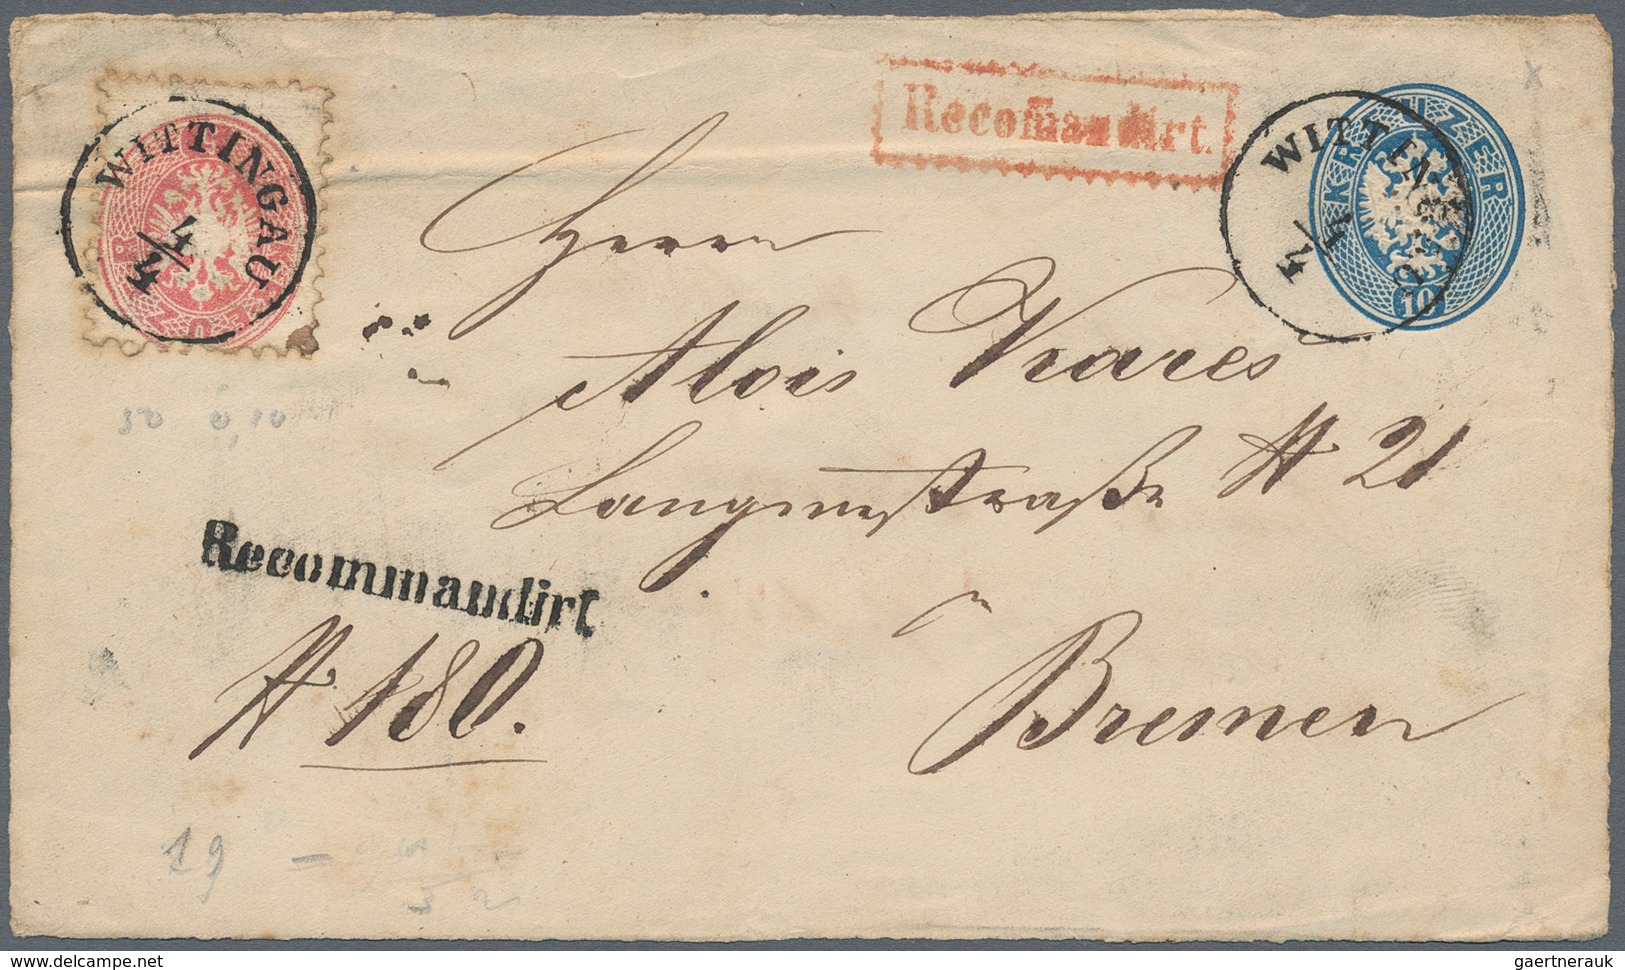 WITTINGAU
4/4
KREUZER
Recom̄andirt.
WITTINGAU
4/4
KREUZER
10
Herrn
Alois Kares
Langenstraße № 21
in
Bremen
Recommandirt
№ 180.
30 0,10
19 -
delcampe.net
gaertnerauk